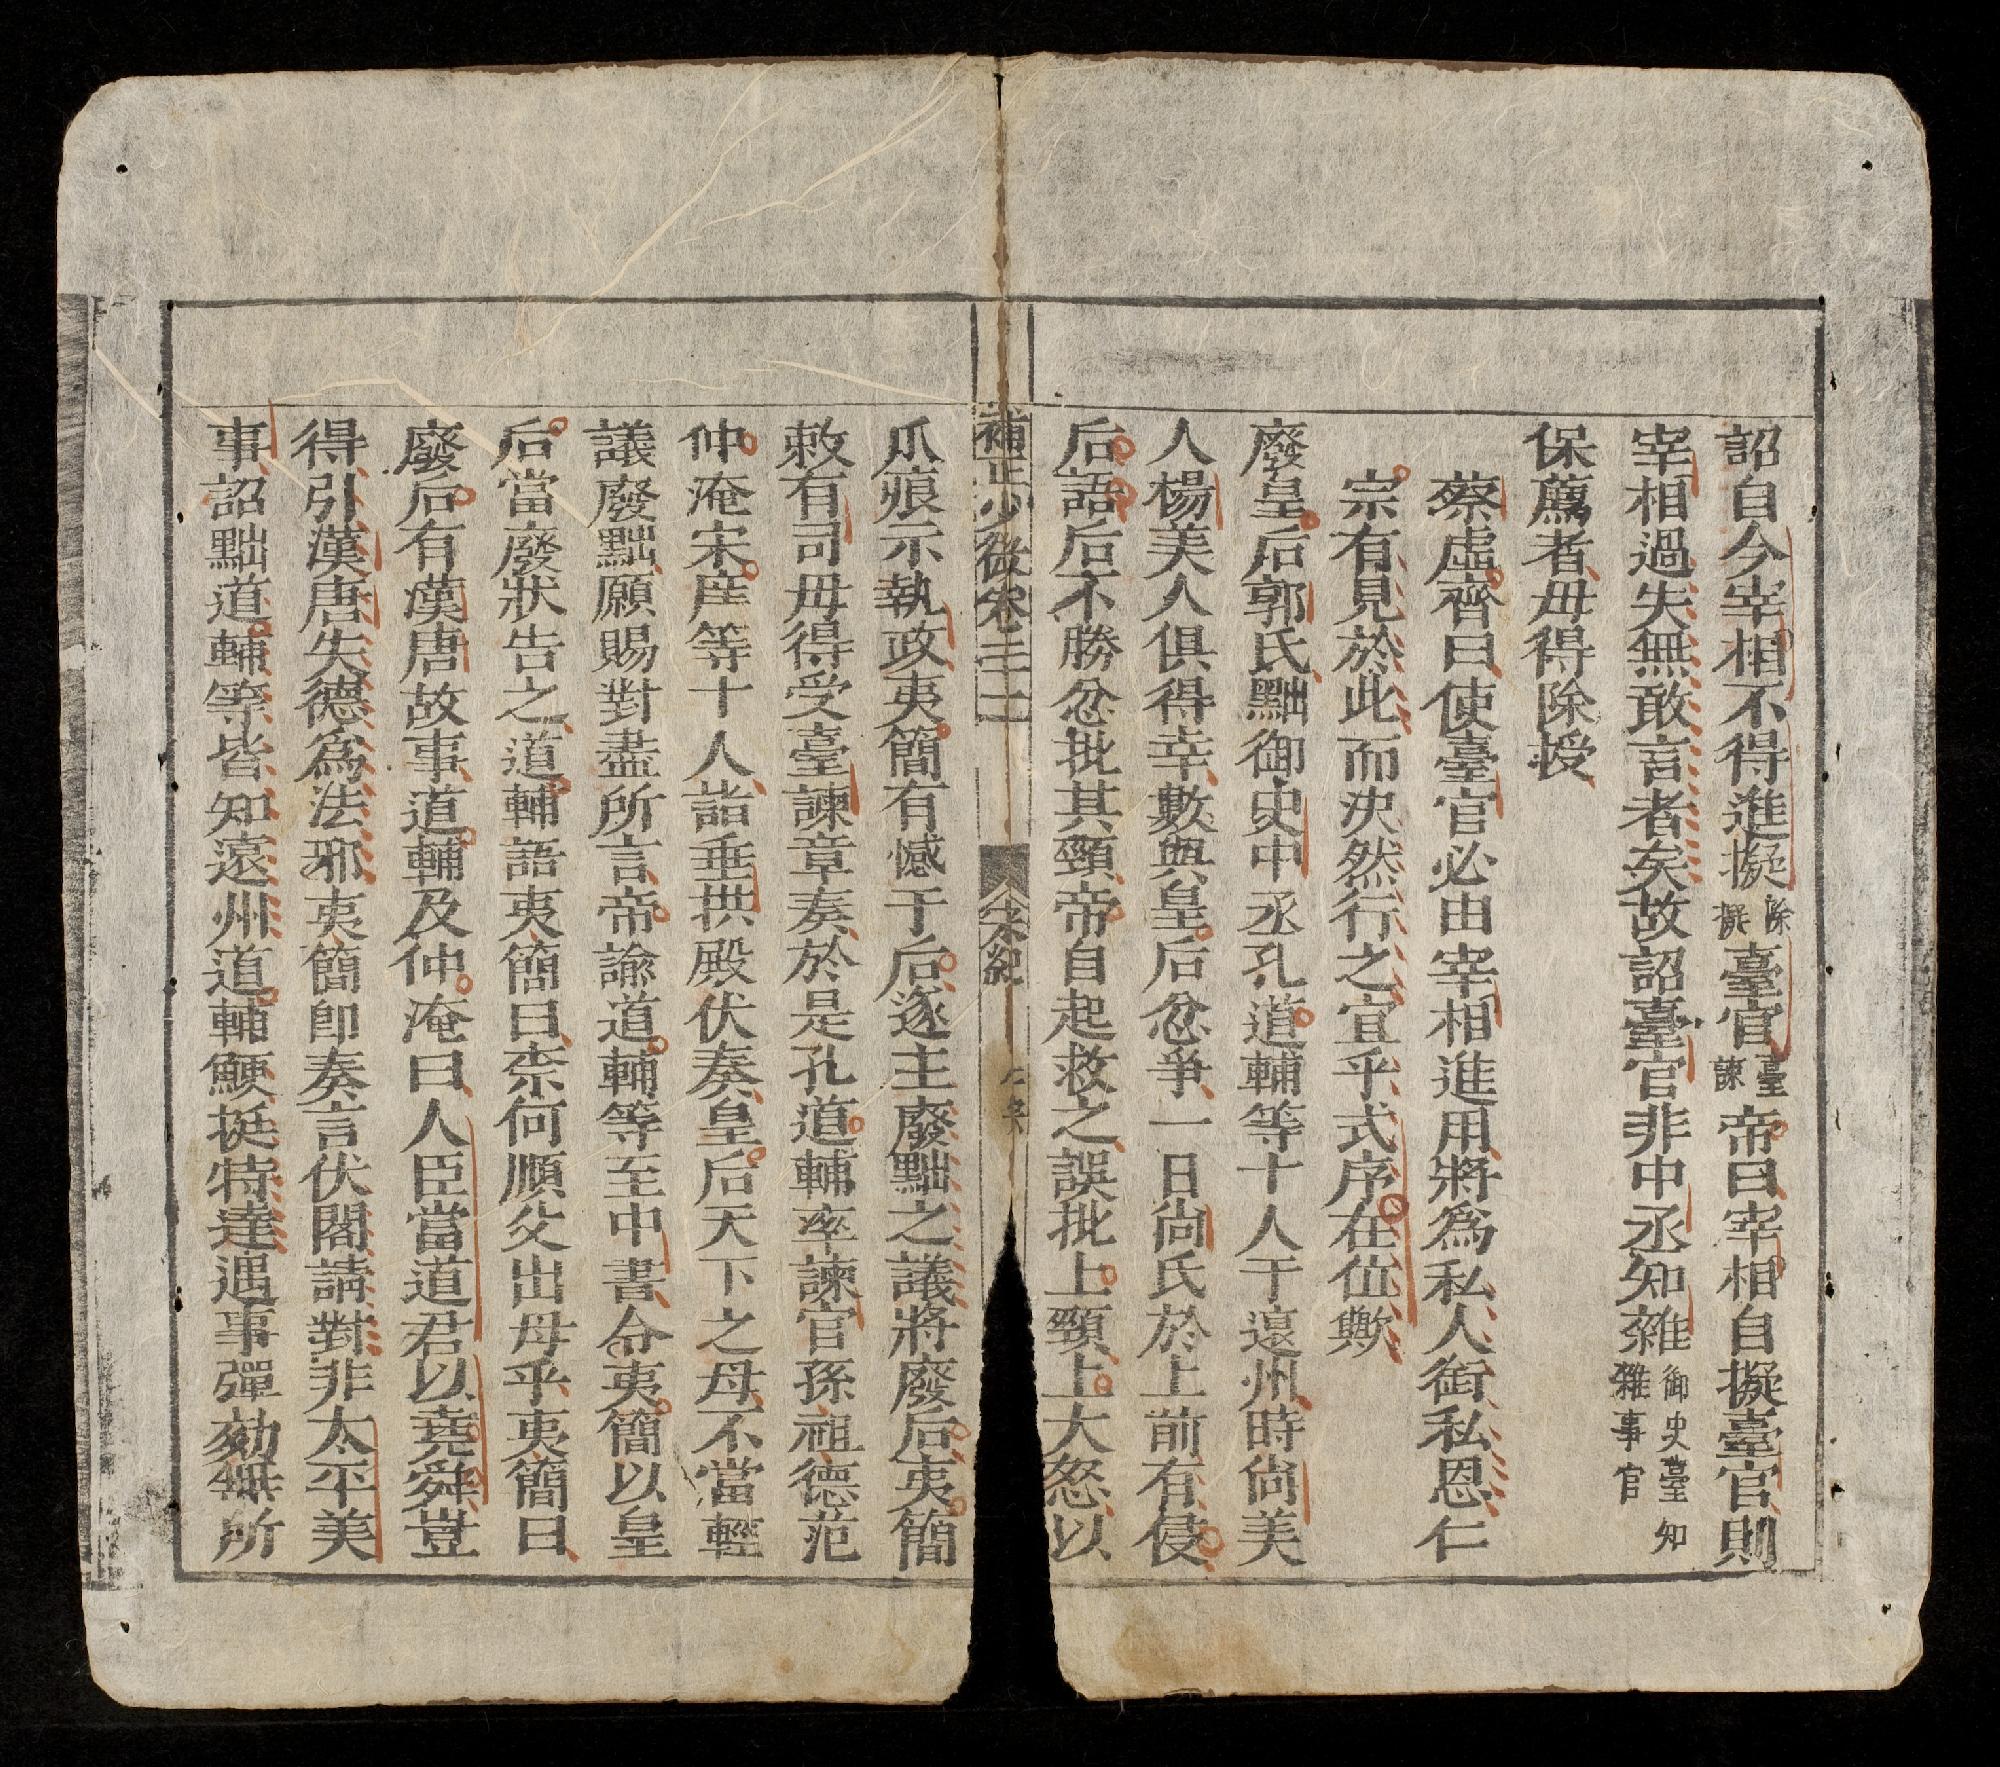 詔自今宰相不得進擬除擬臺官臺諫帝曰宰相自擬臺官則
宰相過失無敢言者矣故詔臺官非中丞知雜御史臺知雜事官
保薦者毋得除授
蔡虛齊曰使臺官必由宰相進用將爲私人銜私恩仁
宗有見於此而决然行之宜乎式序在位歟
廢皇后郭氏黜御史中丞孔道輔等十人于遠州時尚美
人楊美人俱得幸數與皇后忿爭一日尚氏於上前有侵
后語后不勝忿批其頸帝自起救之誤批上頸上大怒以
補正少微宋二一
宋紀
仁宗
爪痕示執政夷簡有憾于后遂主廢黜之議將廢后夷簡
敕有司毋得受臺諫章奏於是孔道輔率諫官孫祖德范
仲淹宋庠等十人詣垂拱殿伏奏皇后天下之母不當輕
議廢黜願賜對盡所言帝諭道輔等至中書令夷簡以皇
后當廢狀告之道輔語夷簡曰柰何順父出母乎夷簡曰
廢后有漢唐故事道輔及仲淹曰人臣當道君以堯舜豈
得引漢唐失德爲法邪夷簡卽奏言伏閤請對非太平美
事詔黜道輔等皆知遠州道輔鯁挺特達遇事彈劾無所